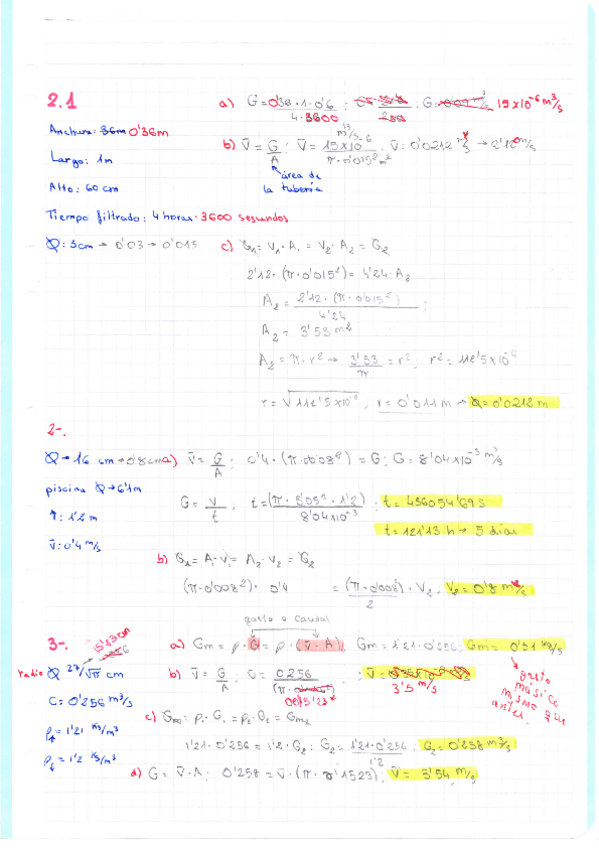 2.1
a) G = 0'36 · 1 · 0'6 ; G: 15 x 10⁻⁶ m³/s
4 · 3600
Anchura: 36m 0'36m
b) V̄ = G/A ; V̄ = 15 x 10⁻⁶ m³/s / π · 0'015² m² ; V̄: 0'0212 m/s → 2'12 m/s
Largo: 1m
área de
la tubería
Alto: 60 cm
Tiempo filtrado: 4 horas · 3600 segundos
Ø: 3cm → 0'03 → 0'015
c) G₁ = V₁ · A₁ = V₂ · A₂ = G₂
2'12 · (π · 0'015²) = 4'24 · A₂
A₂ = 2'12 · (π · 0'015²) / 4'24 ;
A₂ = 3'53 m²
A₂ = π · r² → 3'53 / π = r², r² = 112'5x10⁻⁶
r = √112'5x10⁻⁶, r = 0'011 m → Ø = 0'0212 m
2-.
Ø → 16 cm → 0'8cm
a) V̄ = G/A ; 0'4 · (π · 0'08²) = G ; G: 8'04x10⁻³ m³/s
piscina Ø → 6'1m
G = V/t ; t = (π · 3'05² · 1'2) / 8'04x10⁻³ ; t = 436054'69 s
↑: 1'2 m
t = 121'13 h → 5 días
V̄: 0'4 m/s
b) G₁ = A₁ · V₁ = A₂ · V₂ = G₂
(π · 0'008²) · 0'4 = (π · 0'008²) / 2 · V₂, V₂ = 0'8 m/s
gasto o caudal
3-.
15'23 cm
a) Gm = ρ · G = ρ · (V̄ · A), Gm = 1'21 · 0'256, Gm = 0'31 kg/s
radio Ø 27/√π cm
b) V̄ = G/A ; G = 0'256 ; V̄ =
3'5 m/s
gasto
másico
mismo que
antes.
G = 0'256 m³/s
c) Gm₁ = ρ₁ · G₁ = ρ₂ · G₂ = Gm₂
ρ↑ = 1'21 kg/m³
1'21 · 0'256 = 1'2 · G₂ ; G₂ = 1'21 · 0'256 / 1'2 ; G₂ = 0'258 m³/s
ρ↓ = 1'2 kg/m³
d) G = V̄ · A ; 0'258 = V̄ · (π · 0'1523) ; V̄ = 3'54 m/s